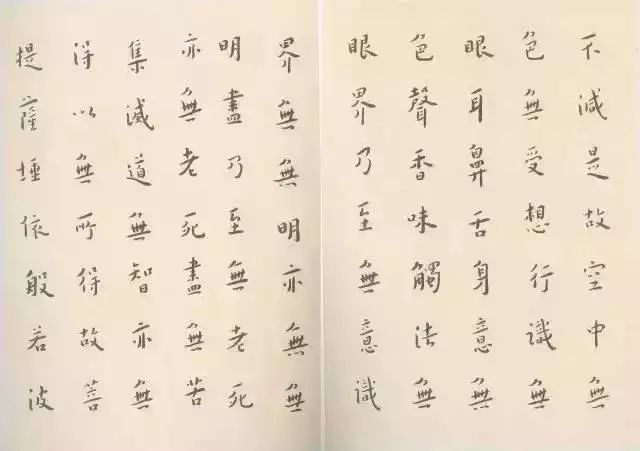 不減是故空中無
色無受想行識無
眼耳鼻舌身意無
色聲香味觸法無
眼界乃至無意識
界無無明亦無無
明盡乃至無老死
亦無老死盡無苦
集滅道無智亦無
得以無所得故菩
提薩埵依般若波